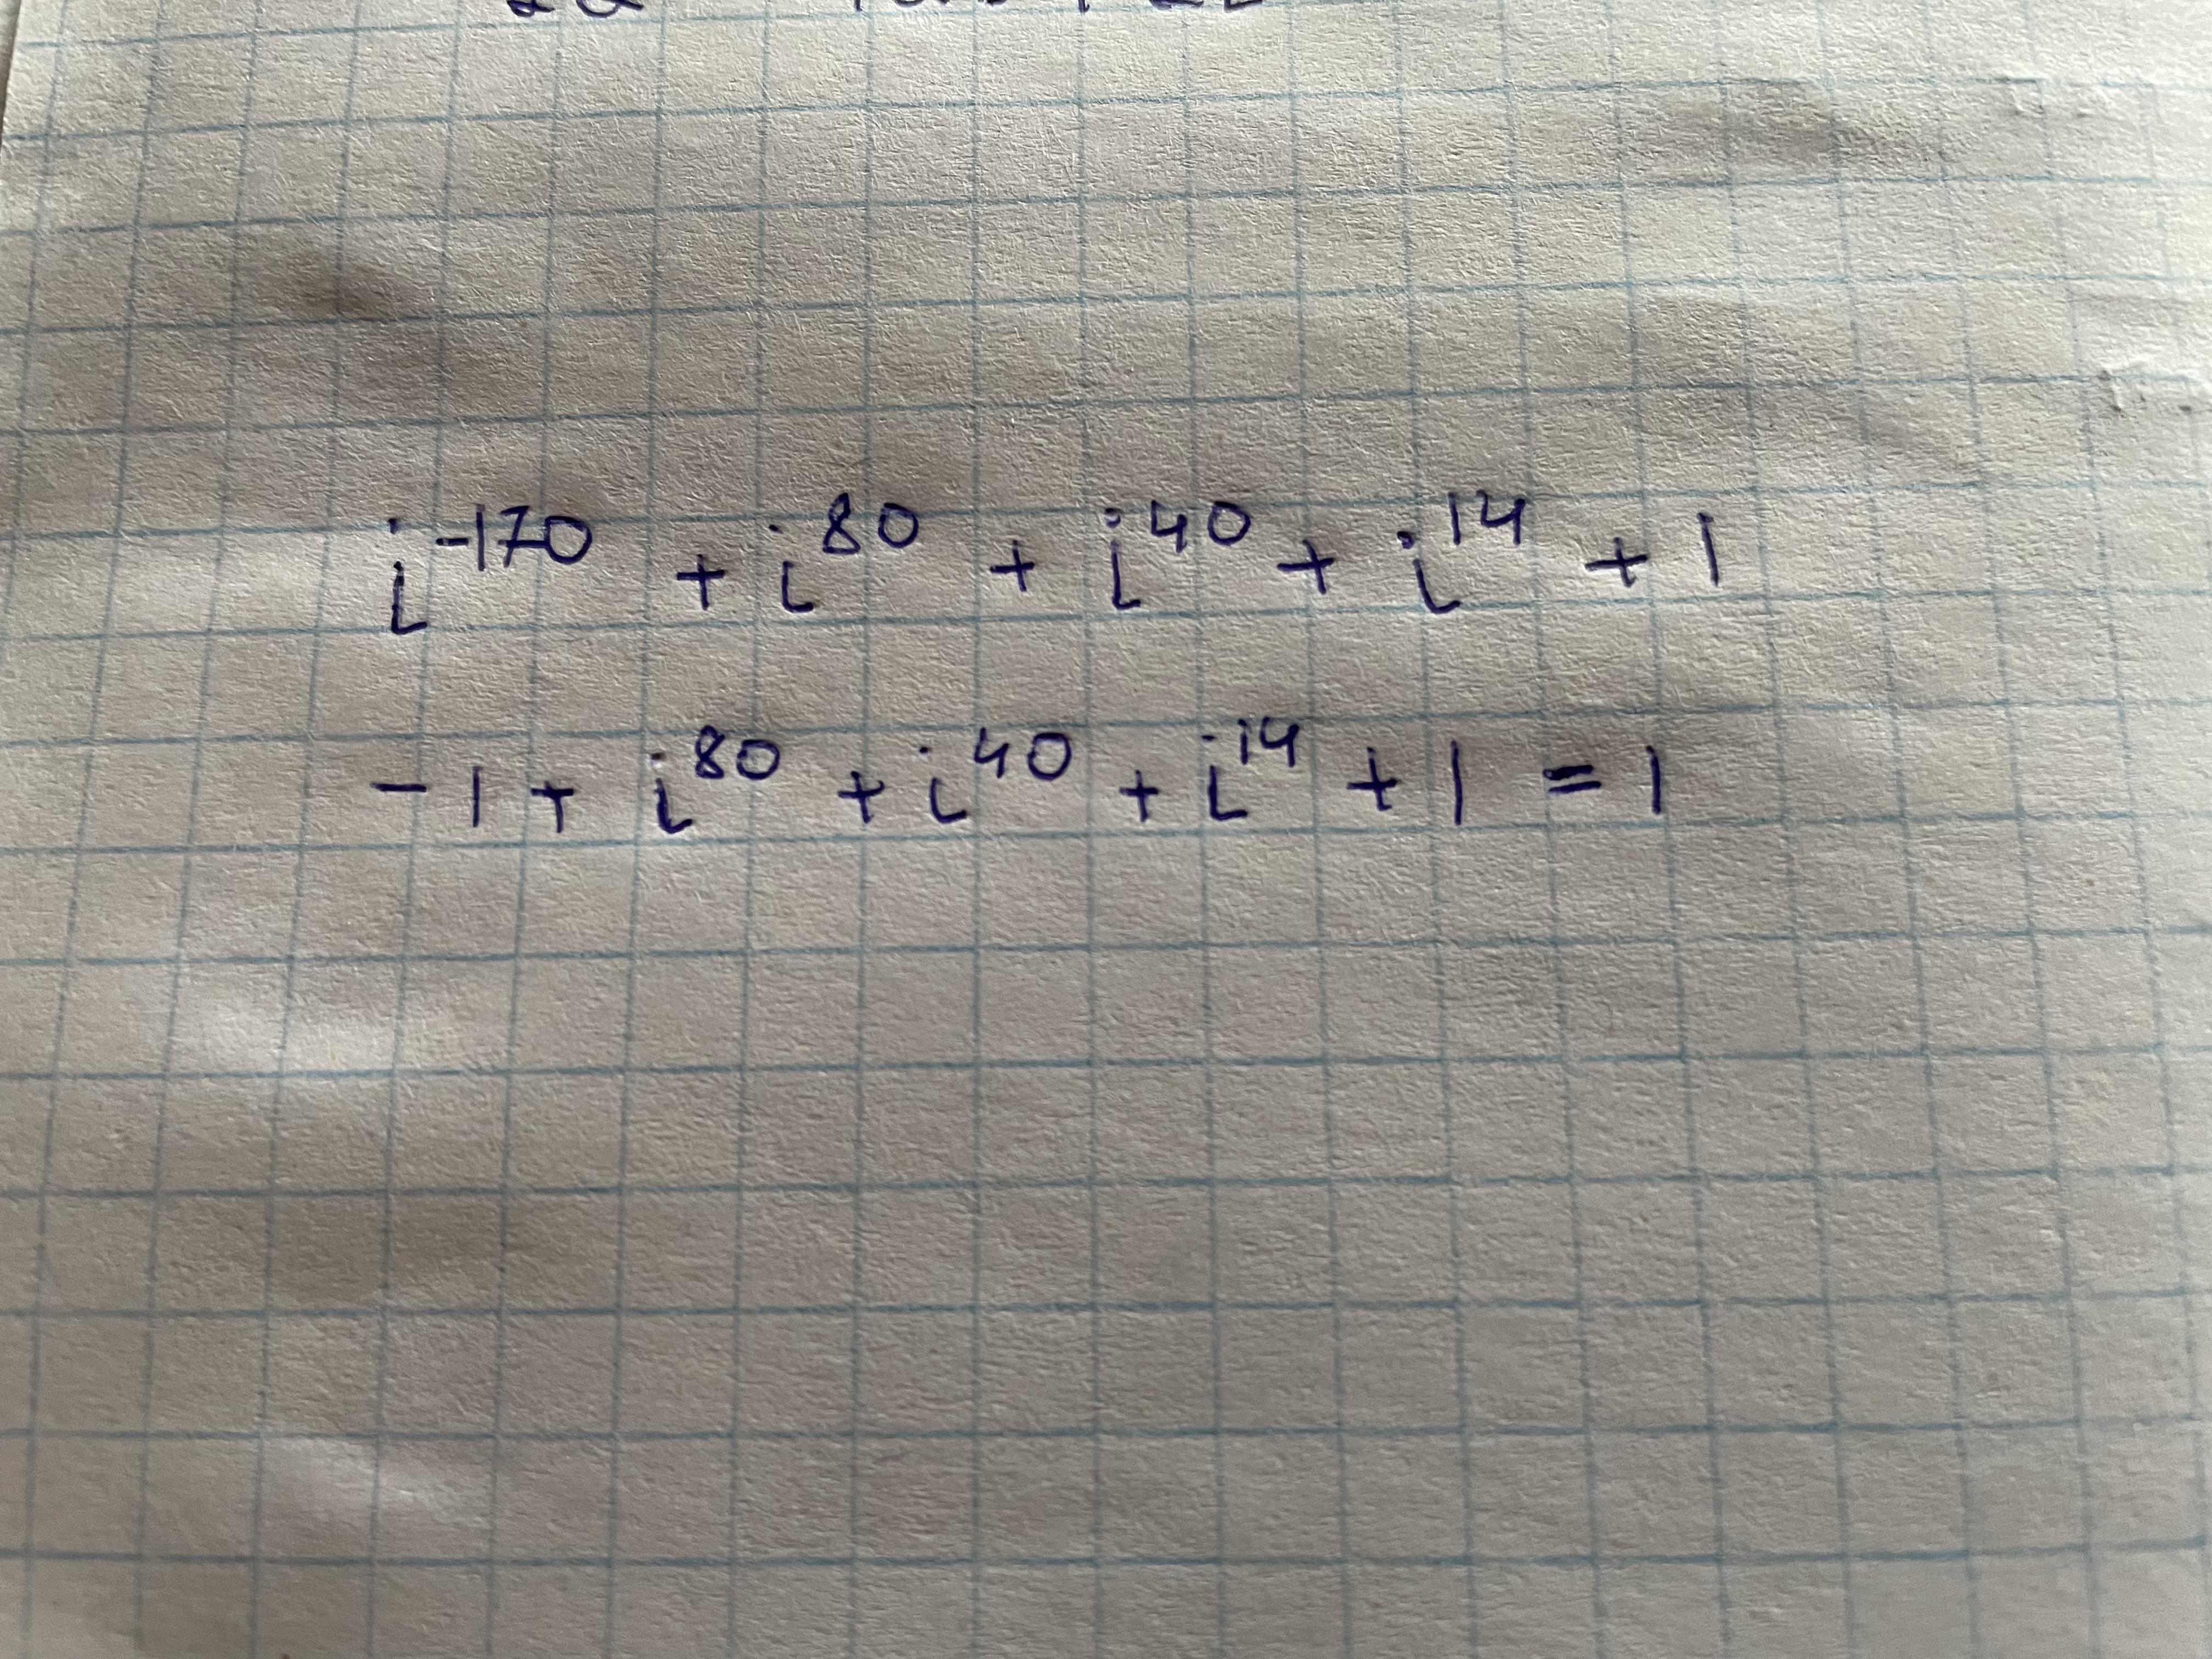 i⁻¹⁷⁰ + i⁸⁰ + i⁴⁰ + i¹⁴ + 1
- 1 + i⁸⁰ + i⁴⁰ + i¹⁴ + 1 = 1